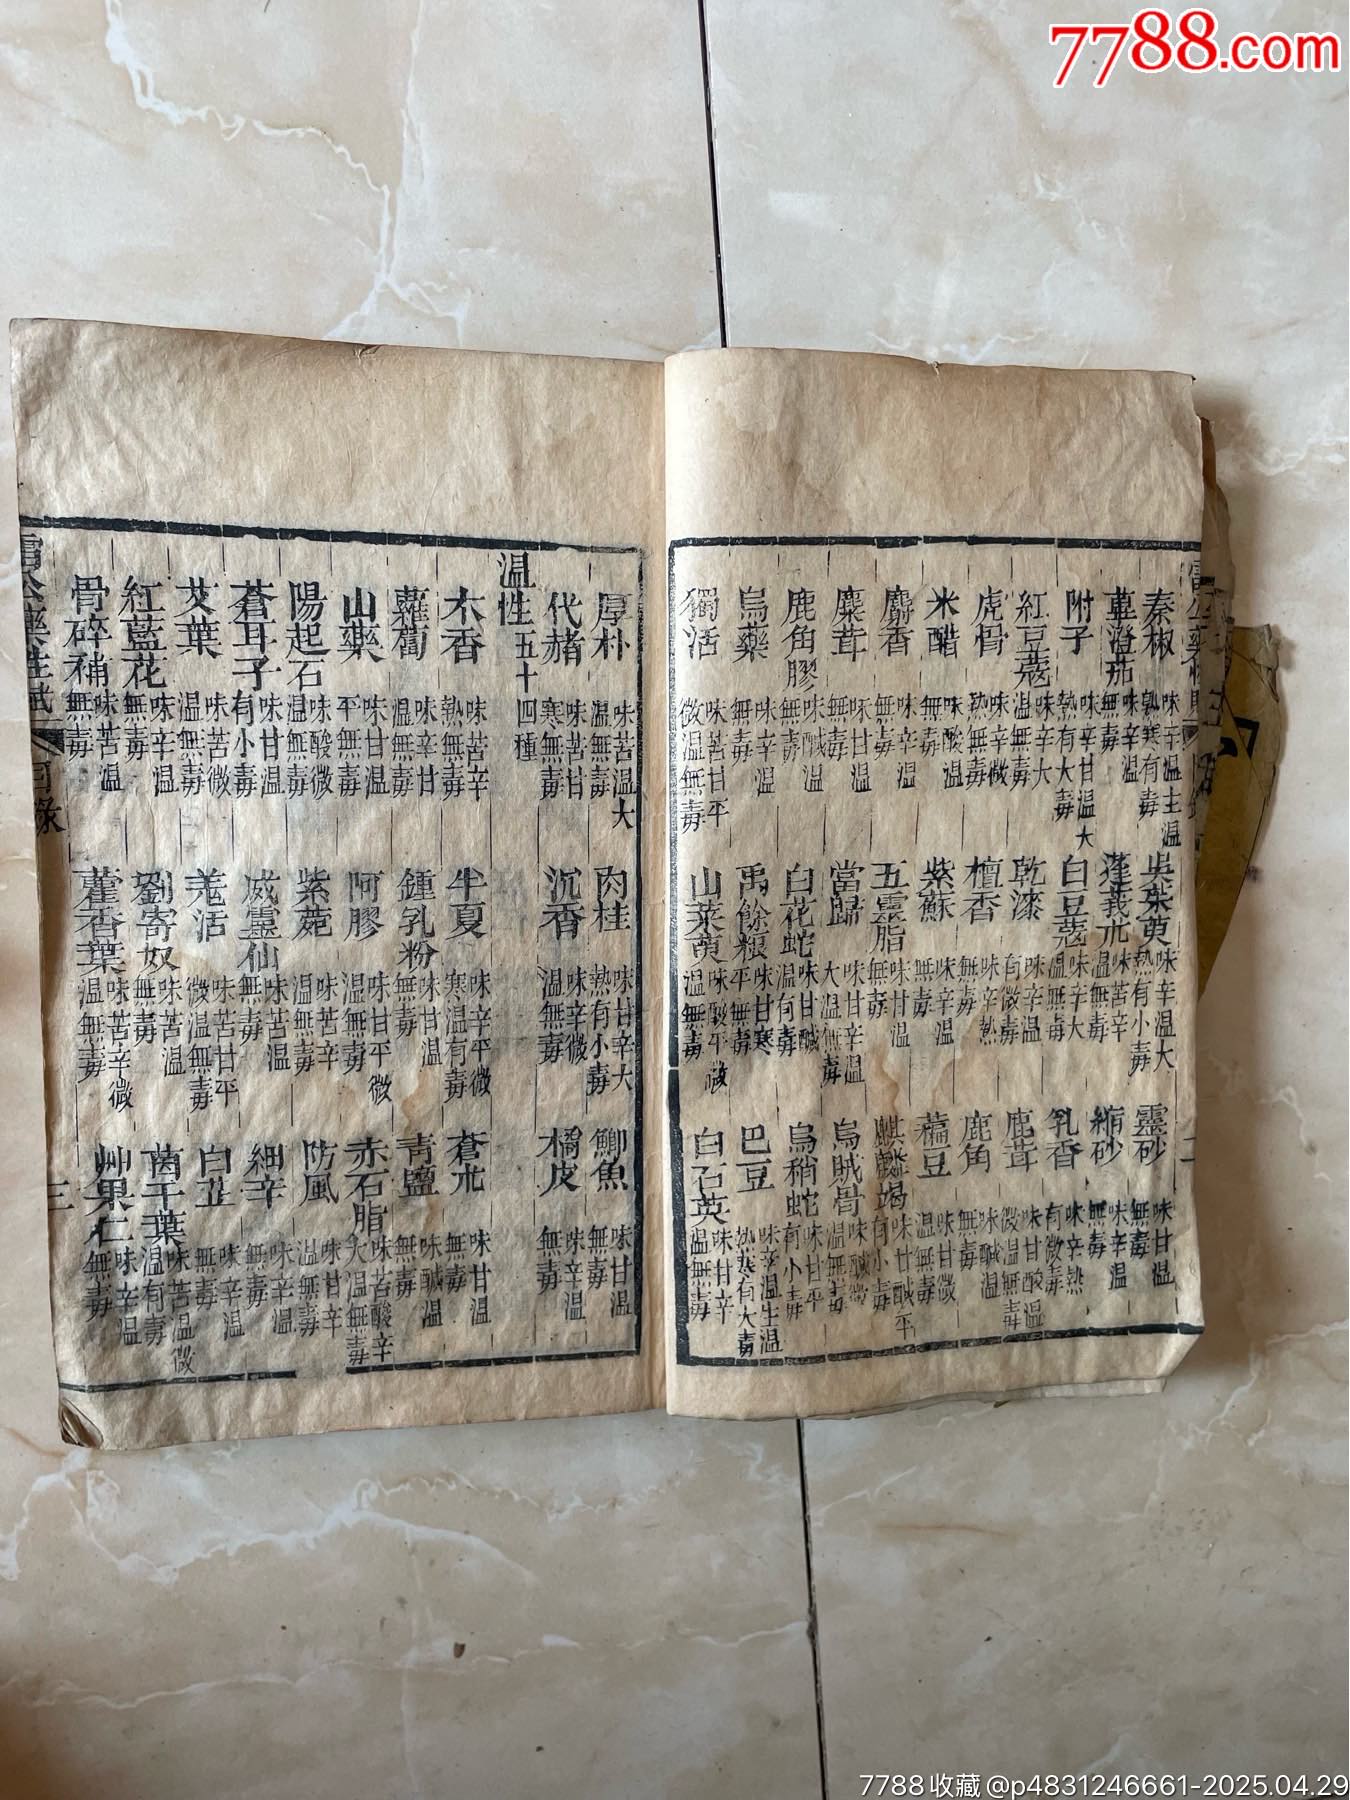 7788.com
秦椒 味辛温生温熟寒有毒 吳茱萸 味辛温大熱有小毒 靈砂 味甘温無毒
蓽澄茄 味辛温無毒 蓬莪朮 味苦辛温無毒 縮砂 味辛温無毒
附子 味辛甘温大熱有大毒 白豆蔻 味辛大温無毒 乳香 味辛熱有微毒
紅豆蔻 味辛大温無毒 乾漆 味辛温有微毒 鹿茸 味甘酸温微温無毒
虎骨 味辛微熱無毒 檀香 味辛熱無毒 鹿角 味鹹温無毒
米醋 味酸温無毒 紫蘇 味辛温無毒 藊豆 味甘微温無毒
麝香 味辛温無毒 五靈脂 味甘温無毒 麒麟竭 味甘鹹平有小毒
麋茸 味甘温無毒 當歸 味甘辛温大温無毒 烏賊骨 味鹹微温無毒
鹿角膠 味鹹温無毒 白花蛇 味甘鹹温有毒 烏稍蛇 味甘平有小毒
烏藥 味辛温無毒 禹餘粮 味甘寒平無毒 巴豆 味辛温生温熟寒有大毒
獨活 味苦甘平微温無毒 山茱萸 味酸平微温無毒 白石英 味甘辛温無毒
厚朴 味苦温大温無毒 肉桂 味甘辛大熱有小毒 鯽魚 味甘温無毒
代赭 味苦甘寒無毒 沉香 味辛微温無毒 橘皮 味辛温無毒
温性五十四種
木香 味苦辛熱無毒 半夏 味辛平微寒温有毒 蒼朮 味甘温無毒
蘿蔔 味辛甘温無毒 鍾乳粉 味甘温無毒 青鹽 味鹹温無毒
山藥 味甘温平無毒 阿膠 味甘平微温無毒 赤石脂 味苦酸辛大温無毒
陽起石 味酸微温無毒 紫菀 味苦辛温無毒 防風 味甘辛温無毒
蒼耳子 味甘温有小毒 威靈仙 味苦温無毒 細辛 味辛温無毒
艾葉 味苦微温無毒 羗活 味苦甘平微温無毒 白芷 味辛温無毒
紅藍花 味辛温無毒 劉寄奴 味苦温無毒 茵干葉 味苦温微温有毒
骨碎補 味苦温無毒 藿香葉 味苦辛微温無毒 艸果仁 味辛温無毒
雷公藥性賦 一 目錄 三
7788收藏@p4831246661-2025.04.29